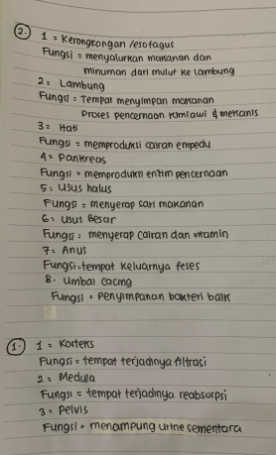 2. 1 = Kerongkongan /esofagus
Fungsi = menyalurkan makanan dan
minuman dari mulut ke lambung
2 = Lambung
Fungsi = Tempat menyimpan makanan
Proses pencernaan kimiawi & mekanis
3 = Hati
Fungsi = memproduksi cairan empedu
4 = Pankreas
Fungsi = memproduksi enzim pencernaan
5 = Usus halus
Fungsi = menyerap sari makanan
6 = Usus Besar
Fungsi = menyerap cairan dan vitamin
7 = Anus
Fungsi = tempat keluarnya feses
8 - Umbai cacing
Fungsi = Penyimpanan bakteri baik
1. 1 = Korteks
Fungsi = tempat terjadinya filtrasi
2 = Medula
Fungsi = tempat terjadinya reabsorpsi
3 = Pelvis
Fungsi = menampung urine sementara